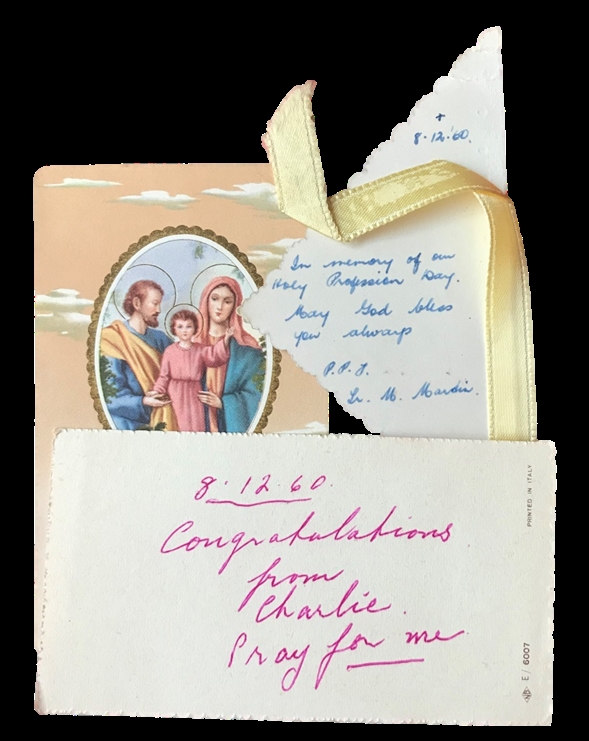 +
8·12·'60.
In memory of our
Holy Profession Day.
May God bless
you always
P.P.J.
Sr. M. Martin.
8·12·60.
Congratulations
from
Charlie.
Pray for me
PRINTED IN ITALY
E/ 6007